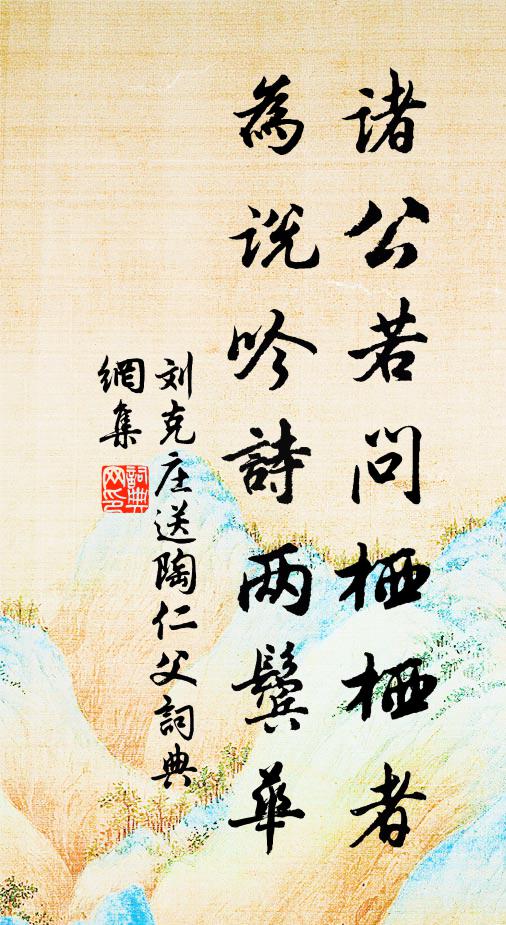 諸公若问栖栖者
為説吟詩两鬢華
刘克庄送陶仁父詞典
網集
詞典
网印